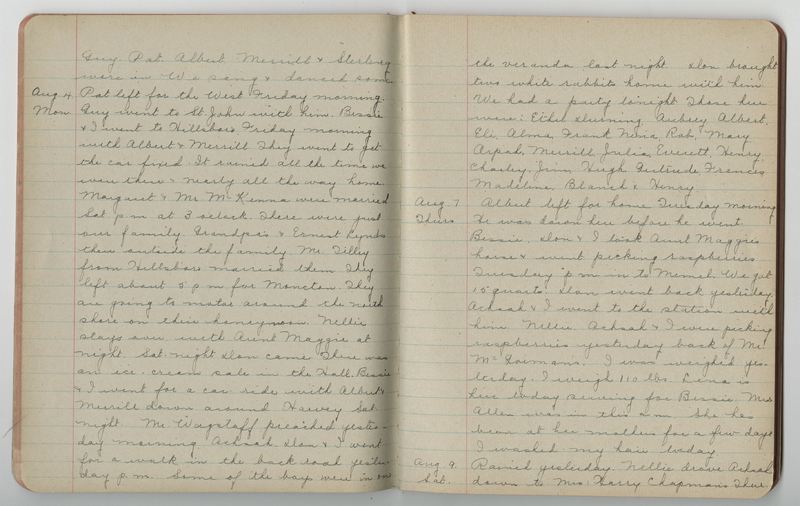 Guy. Pat. Albert Merrill & Sterling
were in We sang & danced some
Aug. 4. Pat left for the West Friday morning.
Mon. Guy went to St. John with him. Bessie
& I went to Hillsboro Friday morning
with Albert & Merrill They went to get
the car fixed. It rained all the time we
were there & nearly all the way home.
Margaret & Mr. McKenna were married
Sat p m at 3 oclock. There were just
our family Grandpa's & Ernest Lynds
then outside the family. Mr. Tilley
from Hillsboro married them They
left about 5 p m for Moncton. They
are going to motor around the north
shore on their honeymoon. Nellie
stays over with Aunt Maggie at
night. Sat. night Don came There was
an ice-cream sale in the Hall. Bessie
& I went for a car ride with Albert &
Merrill down around Harvey Sat
night. Mr. Wagstaff preached yester-
day morning. Achsah. Don & I went
for a walk in the back road yester-
day p.m. Some of the boys were in on
the veranda last night Don brought
two white rabbits home with him
We had a party tonight Those here
were: Aubrey Albert,
Eli. Alma, Frank Rob, Mary
Merrill Julia, Everett, Henry,
Charley. Jim Hugh Gertrude Frances
Madeline, Blanch & Henry
Aug. 7 Albert left for home Tuesday morning
Thurs He was down here before he went.
Bessie. Don & I took Aunt Maggie's
horse & went picking raspberries
Tuesday p m in to Memel. We got
15 quarts. Don went back yesterday.
Achsah & I went to the station with
him Nellie. Achsah & I were picking
raspberries yesterday back of Mr.
I was weighed yes-
terday. I weigh 110 lbs. Lena is
here today sewing for Bessie. Mrs
Allen was in this a.m. She has
been at her mothers for a few days
I washed my hair today.
Aug. 9. Rained yesterday. Nellie drove Achsah
Sat. down to Mrs. Harry Chapmans Thur.